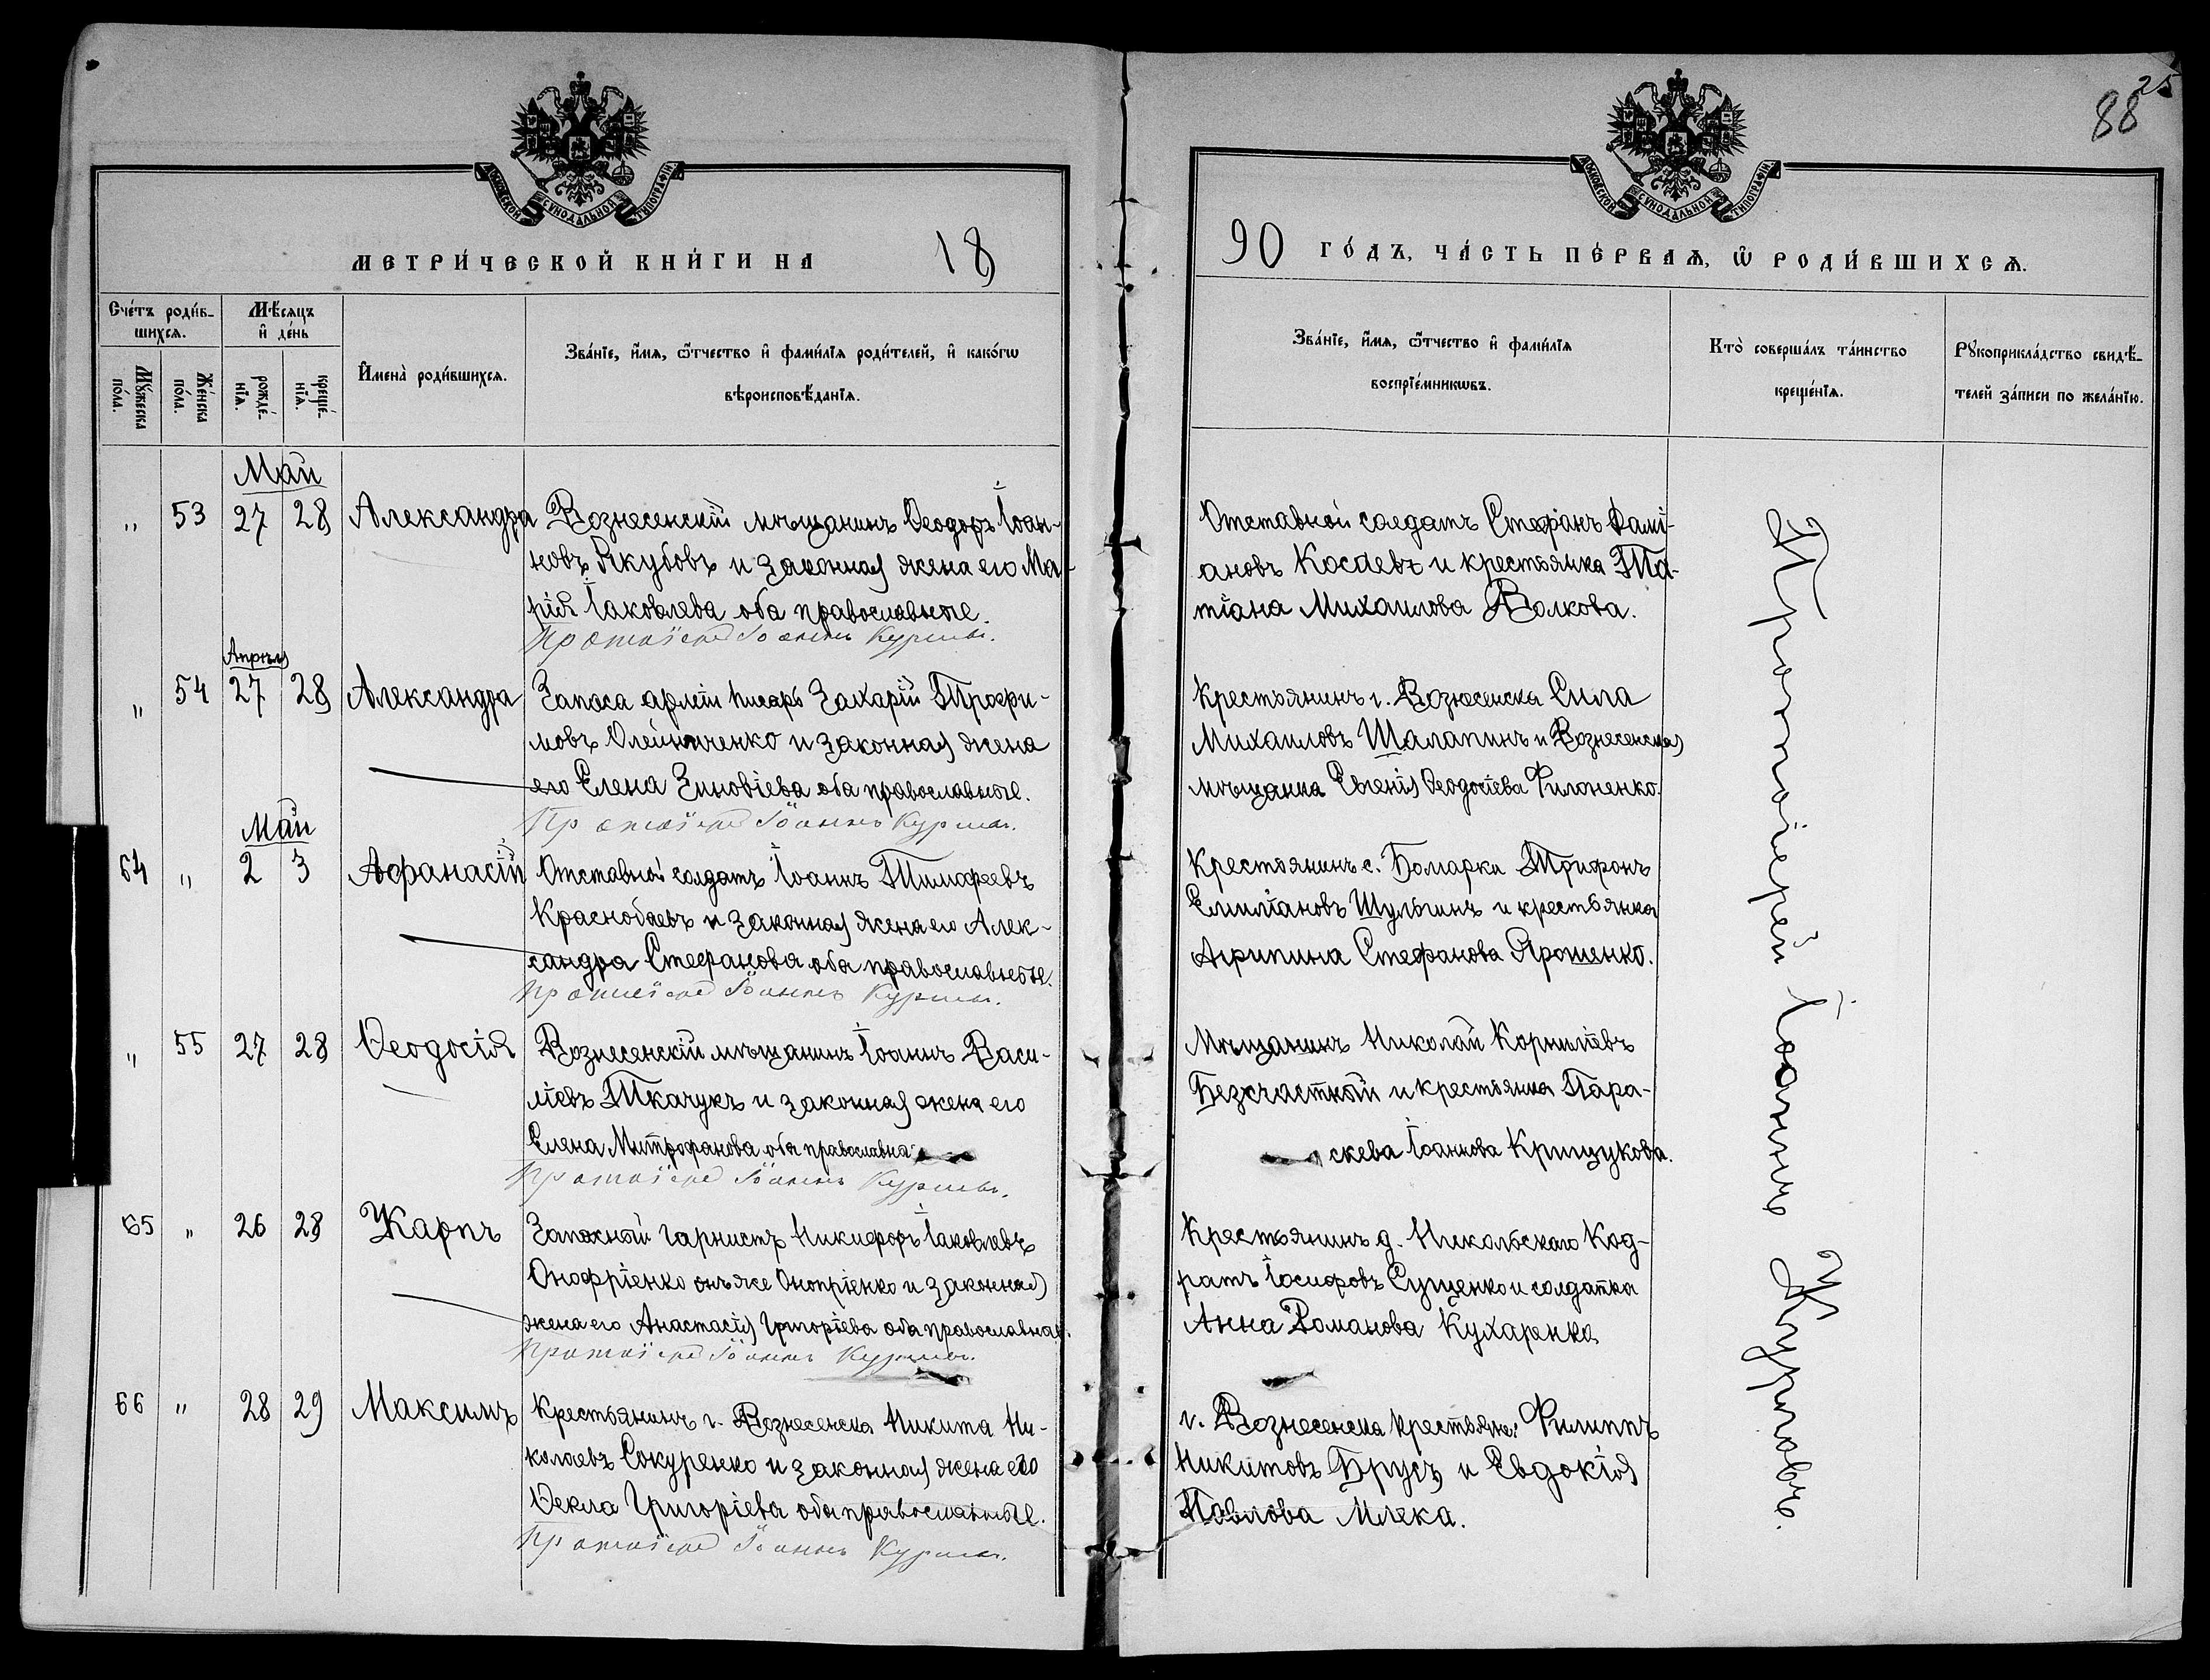 88 25
МОСКОВСКОЙ СѴНОДАЛЬНОЙ ТИПОГРАФІИ
МОСКОВСКОЙ СѴНОДАЛЬНОЙ ТИПОГРАФІИ
МЕТРИ́ЧЕСКОЙ КНИ́ГИ НА 18
90 ГО́ДЪ, ЧА́СТЬ ПЕ́РВАѦ, Ѡ҆ РОДИ́ВШИХСѦ.
Сче́тъ роди́в-
шихсѧ.
Мѣ́сяцъ
и҆ де́нь
Мꙋ́жеска
по́ла.
Же́нска
по́ла.
рожде́-
нїѧ.
креще́-
нїѧ.
И҆мена̀ роди́вшихсѧ.
Зва́нїе, и҆́мѧ, ѻ҆́тчество и҆ фами́лїѧ роди́телей, и҆ како́гѡ
вѣроисповѣ́данїѧ.
Зва́нїе, и҆́мѧ, ѻ҆́тчество и҆ фами́лїѧ
воспрїе́мникѡвъ.
Кто̀ соверша́лъ та́инство
креще́нїѧ.
Рꙋкоприкла́дство свидѣ́-
телей за́писи по жела́нїю.
Май
" 53 27 28 Александра Вознесенскій мѣщанинъ Ѳеодоръ Іоан-
новъ Якубовъ и законная жена его Ма-
рія Іаковлева оба православные.
Протоіерей Іоаннъ Куриловъ.
Отставной солдатъ Стефанъ Дамі-
ановъ Косаевъ и крестьянка Та-
тіана Михаилова Волкова.
Апрѣля
" 54 27 28 Александра Запаса арміи писарь Захарій Трофи-
мовъ Олейниченко и законная жена
его Елена Зиновіева оба православные.
Протоіерей Іоаннъ Куриловъ.
Крестьянинъ г. Вознесенска Сила
Михаиловъ Шалапинъ и Вознесенская
мѣщанка Евгенія Ѳеодосіева Филоненко.
Май
64 " 2 3 Афанасій Отставной солдатъ Іоаннъ Тимофеевъ
Краснобаевъ и законная жена его Алек-
сандра Стефанова оба православные.
Протоіерей Іоаннъ Куриловъ.
Крестьянинъ с. Болгарки Трифонъ
Емиліановъ Шульгинъ и крестьянка
Агрипина Стефанова Ярошенко.
" 55 27 28 Ѳеодосія Вознесенскій мѣщанинъ Іоаннъ Васи-
ліевъ Ткачукъ и законная жена его
Елена Митрофанова оба православна
Протоіерей Іоаннъ Куриловъ.
Мѣщанинъ Николай Корниліевъ
Безсчастной и крестьянка Пара-
скева Іоаннова Крищукова.
65 " 26 28 Карпъ Запасный горнистъ Никифоръ Іаковлевъ
Онофріенко онъ же Оноприенко и законная
жена его Анастасія Григоріева оба православная.
Протоіерей Іоаннъ Куриловъ.
Крестьянинъ д. Никольскаго Код-
ратъ Іосифовъ Сущенко и солдатка
Анна Романова Кухаренка
66 " 28 29 Максимъ Крестьянинъ г. Вознесенска Никита Ни-
колаевъ Сокуренко и законная жена его
Ѳекла Григоріева оба православные.
Протоіерей Іоаннъ Куриловъ.
г. Вознесенска крестьяне: Филиппъ
Никитовъ Брусъ и Евдокія
Павлова Млека.
Протоіерей Іоаннъ Куриловъ.